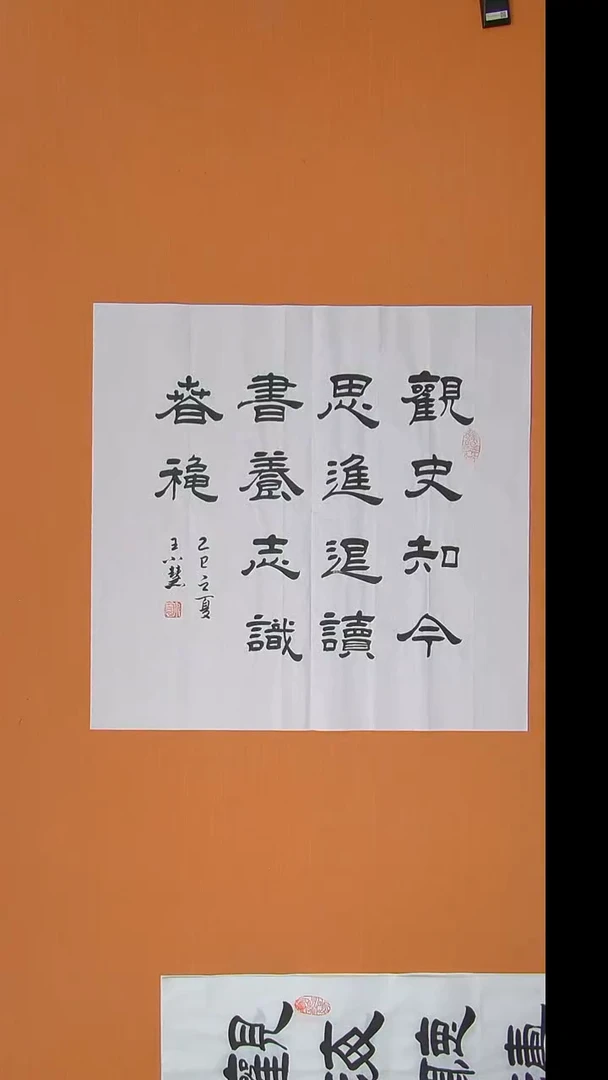 觀史知今
思進退讀
書養志識
春穐
乙巳之夏
王小慧